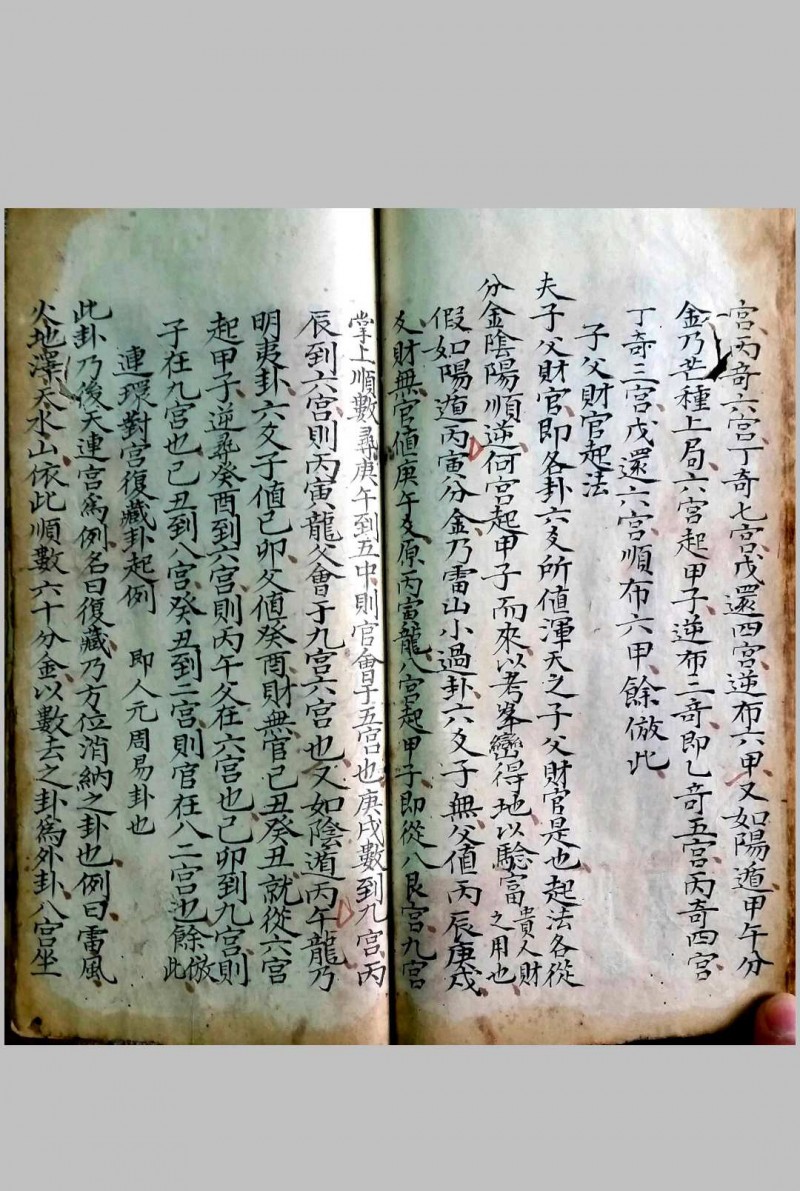 宮丙奇六宮丁奇七宮戊還四宮逆布六甲又如陽遁甲午分
金乃芒種上局六宮起甲子逆布二奇即乙奇五宮丙奇四宮
丁奇三宮戊還六宮順布六甲餘倣此
子父財官起法
夫子父財官即各卦六爻所值渾天之子父財官是也起法各從
分金陰陽順逆何宮起甲子而來以考峯巒得地以驗富貴人財之用也
假如陽遁丙寅分金乃雷山小過卦六爻子無父值丙辰庚戌
爻財無官值庚午爻原丙寅龍八宮起甲子即從八艮宮九宮
掌上順數尋庚午到五中則官會于五宮也庚戌數到九宮丙
辰到六宮則丙寅龍父會于九宮六宮也又如陰遁丙午龍乃
明夷卦六爻子值己卯父值癸酉財無官己丑癸丑就從六宮
起甲子逆尋癸酉到六宮則丙午父在六宮也己卯到九宮則
子在九宮也己丑到八宮癸丑到二宮則官在八二宮也餘倣此
連環對宮復藏卦起例 即人元周易卦也
此卦乃後天連宮為例名曰復藏乃方位消納之卦也例曰雷風
火地澤天水山依此順數六十分金以數去之卦為外卦八宮坐